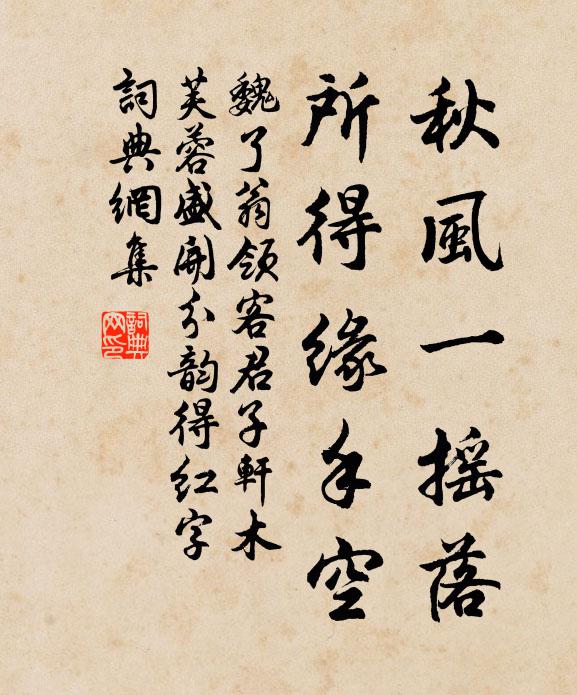 秋風一摇落
所得緣手空
魏了翁領客君子軒木
芙蓉盛開分韵得紅字
詞典網集
詞典网印